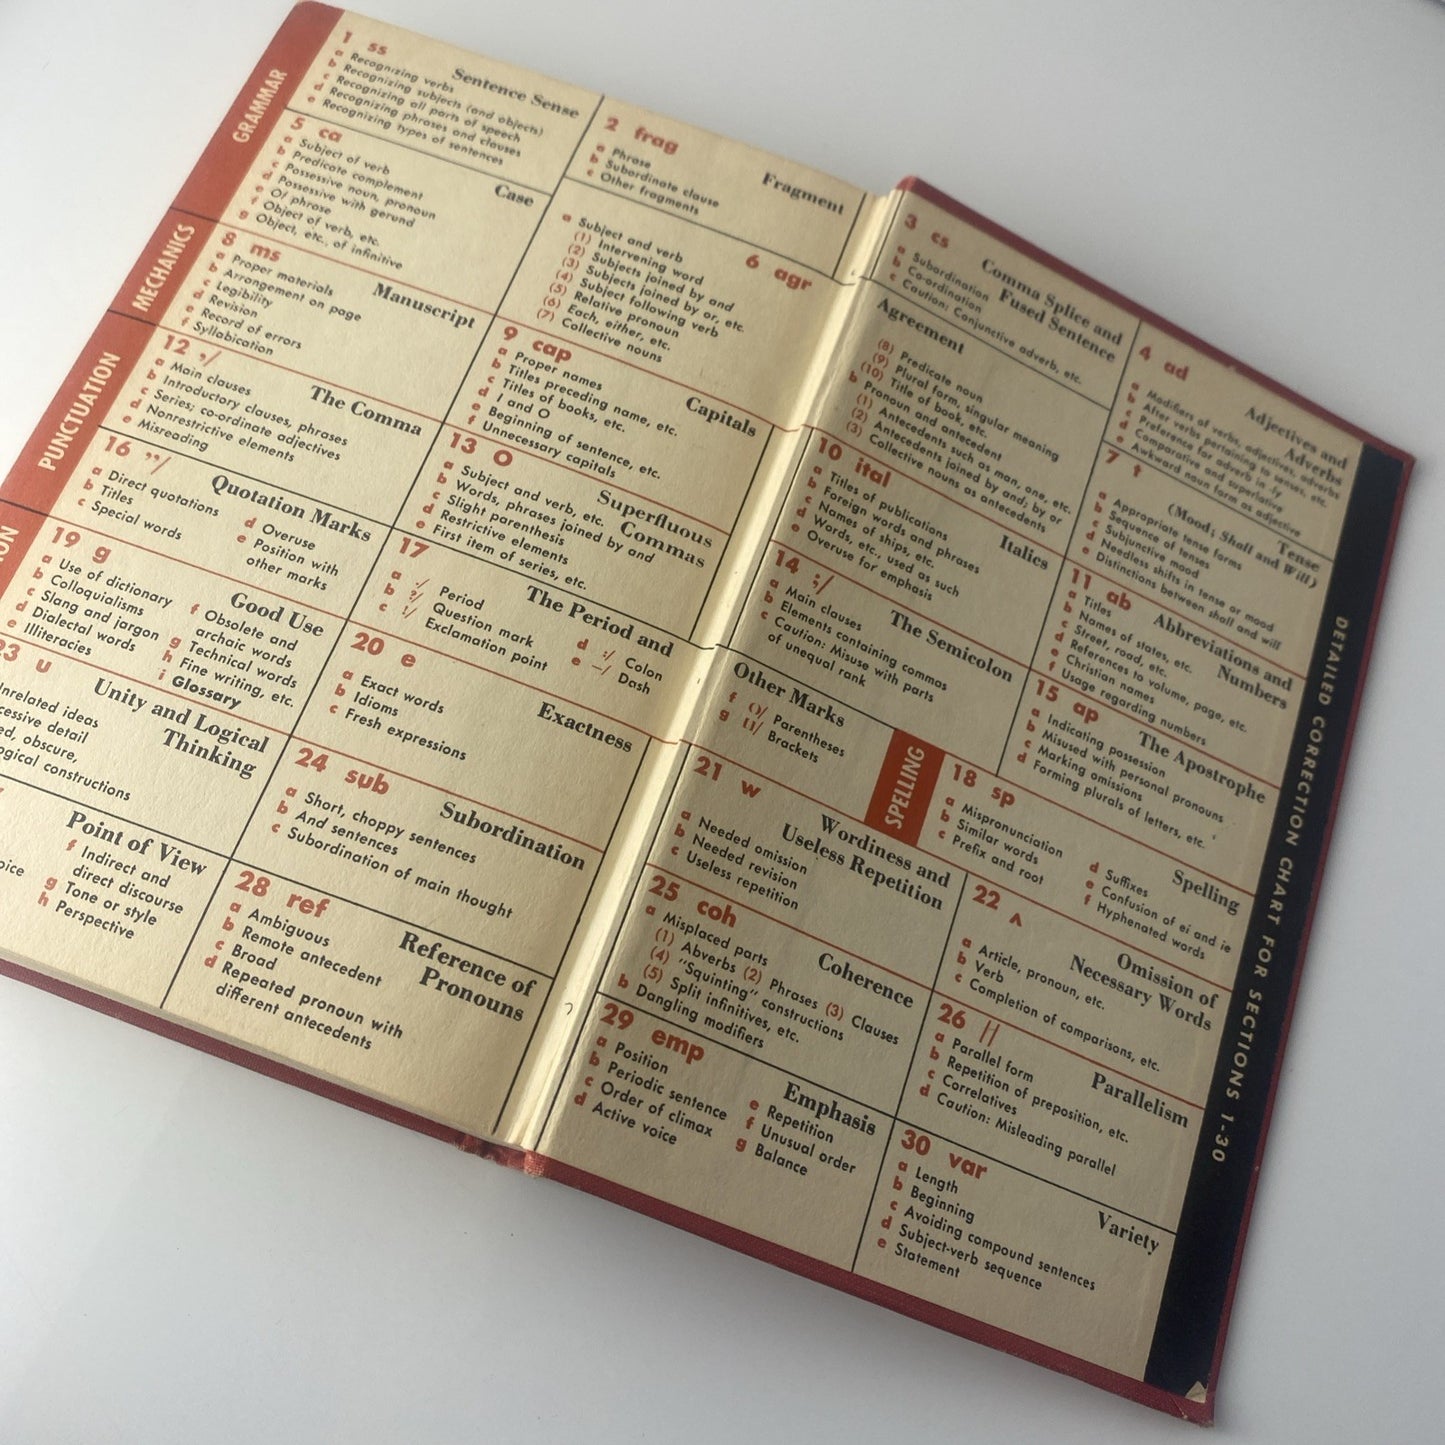 GRAMMAR
1 ss
Sentence Sense
a Recognizing verbs
b Recognizing subjects (and objects)
c Recognizing all parts of speech
d Recognizing phrases and clauses
e Recognizing types of sentences
2 frag
Fragment
a Phrase
b Subordinate clause
c Other fragments
3 cs
Comma Splice and
Fused Sentence
a Subordination
b Co-ordination
c Caution: Conjunctive adverb, etc.
4 ad
Adjectives and
Adverbs
a Modifiers of verbs, adjectives, adverbs
b After verbs pertaining to senses, etc.
c Preference for adverb in -ly
d Comparative and superlative
e Awkward noun form as adjective
5 ca
Case
a Subject of verb
b Predicate complement
c Possessive noun, pronoun
d Possessive with gerund
e Of phrase
f Object of verb, etc.
g Object, etc., of infinitive
6 agr
Agreement
a Subject and verb
(1) Intervening word
(2) Subjects joined by and
(3) Subjects joined by or, etc.
(4) Subject following verb
(5) Relative pronoun
(6) Each, either, etc.
(7) Collective nouns
(8) Predicate noun
(9) Plural form, singular meaning
(10) Title of book, etc.
b Pronoun and antecedent
(1) Antecedents such as man, one, etc.
(2) Antecedents joined by and; by or
(3) Collective nouns as antecedents
7 t
Tense
(Mood; Shall and Will)
a Appropriate tense forms
b Sequence of tenses
c Subjunctive mood
d Needless shifts in tense or mood
e Distinctions between shall and will
MECHANICS
8 ms
Manuscript
a Proper materials
b Arrangement on page
c Legibility
d Revision
e Record of errors
f Syllabication
9 cap
Capitals
a Proper names
b Titles preceding name, etc.
c Titles of books, etc.
d I and O
e Beginning of sentence, etc.
f Unnecessary capitals
10 ital
Italics
a Titles of publications
b Foreign words and phrases
c Names of ships, etc.
d Words, etc., used as such
e Overuse for emphasis
11 ab
Abbreviations and
Numbers
a Titles
b Names of states, etc.
c Street, road, etc.
d References to volume, page, etc.
e Christian names
f Usage regarding numbers
PUNCTUATION
12 ,/
The Comma
a Main clauses
b Introductory clauses, phrases
c Series; co-ordinate adjectives
d Nonrestrictive elements
e Misreading
13 O
Superfluous
Commas
a Subject and verb, etc.
b Words, phrases joined by and
c Slight parenthesis
d Restrictive elements
e First item of series, etc.
14 ;/
The Semicolon
a Main clauses
b Elements containing commas
c Caution: Misuse with parts
of unequal rank
15 ap
The Apostrophe
a Indicating possession
b Misused with personal pronouns
c Marking omissions
d Forming plurals of letters, etc.
16 ”/
Quotation Marks
a Direct quotations
b Titles
c Special words
d Overuse
e Position with
other marks
17
The Period and
Other Marks
a ./ Period
b ?/ Question mark
c !/ Exclamation point
d :/ Colon
e —/ Dash
f ()/ Parentheses
g []/ Brackets
SPELLING
18 sp
Spelling
a Mispronunciation
b Similar words
c Prefix and root
d Suffixes
e Confusion of ei and ie
f Hyphenated words
ON
19 g
Good Use
a Use of dictionary
b Colloquialisms
c Slang and jargon
d Dialectal words
e Illiteracies
f Obsolete and
archaic words
g Technical words
h Fine writing, etc.
i Glossary
20 e
Exactness
a Exact words
b Idioms
c Fresh expressions
21 w
Wordiness and
Useless Repetition
a Needed omission
b Needed revision
c Useless repetition
22 ^
Omission of
Necessary Words
a Article, pronoun, etc.
b Verb
c Completion of comparisons, etc.
23 u
Unity and Logical
Thinking
nrelated ideas
cessive detail
ed, obscure,
ogical constructions
24 sub
Subordination
a Short, choppy sentences
b And sentences
c Subordination of main thought
25 coh
Coherence
a Misplaced parts
(1) Abverbs (2) Phrases (3) Clauses
(4) "Squinting" constructions
(5) Split infinitives, etc.
b Dangling modifiers
26 //
Parallelism
a Parallel form
b Repetition of preposition, etc.
c Correlatives
d Caution: Misleading parallel
Point of View
oice
f Indirect and
direct discourse
g Tone or style
h Perspective
28 ref
Reference of
Pronouns
a Ambiguous
b Remote antecedent
c Broad
d Repeated pronoun with
different antecedents
29 emp
Emphasis
a Position
b Periodic sentence
c Order of climax
d Active voice
e Repetition
f Unusual order
g Balance
30 var
Variety
a Length
b Beginning
c Avoiding compound sentences
d Subject-verb sequence
e Statement
DETAILED CORRECTION CHART FOR SECTIONS 1-30